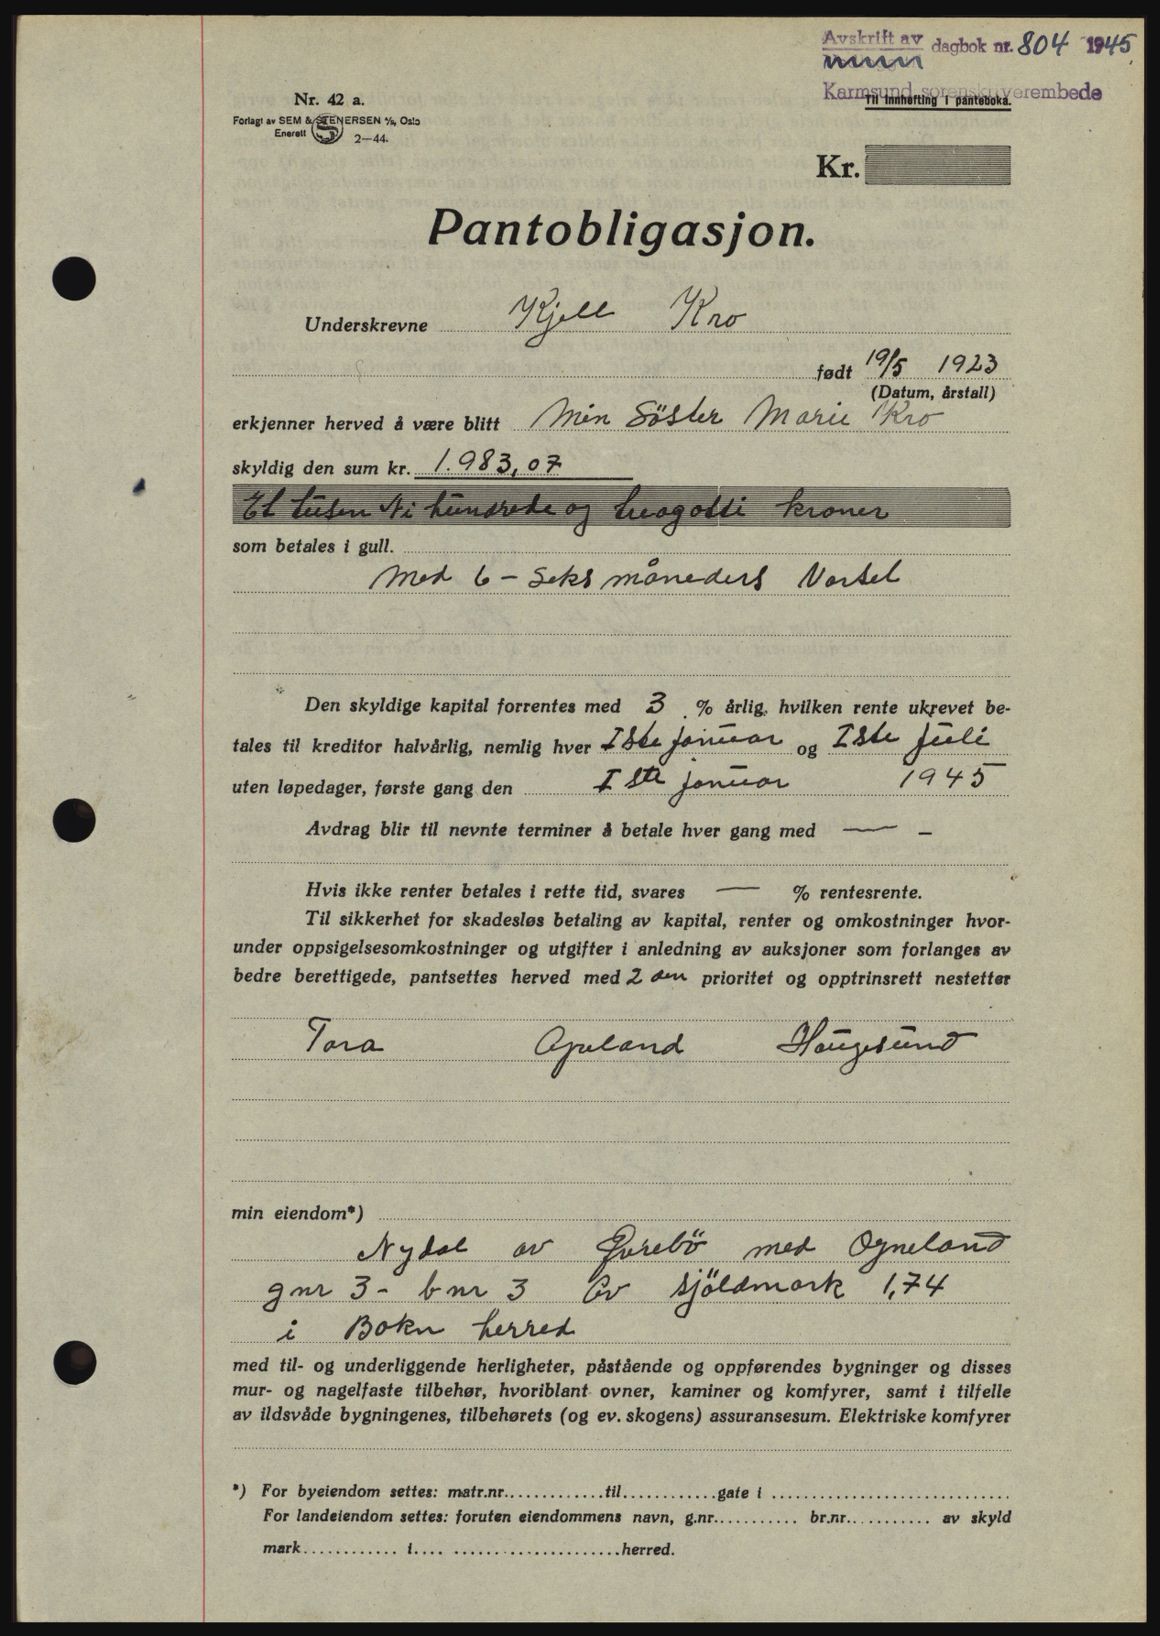 Avskrift av dagbok nr. 804 1945
Karmsund sorenskriverembede
Til innhefting i panteboka.
Nr. 42 a.
Forlagt av SEM & STENERSEN A/S, Oslo
Enerett S 2—44.
Kr.
Pantobligasjon.
Underskrevne Kjell Kro
født 19/5 1923
(Datum, årstall)
erkjenner herved å være blitt Min Söster Marie Kro
skyldig den sum kr. 1.983,07
Et tusen Ni hundrede og treogotti kroner
som betales i gull.
Med 6 - Seks måneders Varsel
Den skyldige kapital forrentes med 3 % årlig, hvilken rente ukrevet be-
tales til kreditor halvårlig, nemlig hver Iste januar og Iste Juli
uten løpedager, første gang den Iste januar 1945
Avdrag blir til nevnte terminer å betale hver gang med — -
Hvis ikke renter betales i rette tid, svares — % rentesrente.
Til sikkerhet for skadesløs betaling av kapital, renter og omkostninger hvor-
under oppsigelsesomkostninger og utgifter i anledning av auksjoner som forlanges av
bedre berettigede, pantsettes herved med 2 den prioritet og opptrinsrett nestetter
Tora Haugesund
min eiendom*)
Nydal av med Ogneland
gnr 3 - bnr 3 Av skjöldmark 1,74
i Bokn herred
med til- og underliggende herligheter, påstående og oppførendes bygninger og disses
mur- og nagelfaste tilbehør, hvoriblant ovner, kaminer og komfyrer, samt i tilfelle
av ildsvåde bygningenes, tilbehørets (og ev. skogens) assuransesum. Elektriske komfyrer
*) For byeiendom settes: matr.nr.............til............gate i ..............................
For landeiendom settes: foruten eiendommens navn, g.nr........... br.nr........... av skyld
mark............ i.... .....................herred.